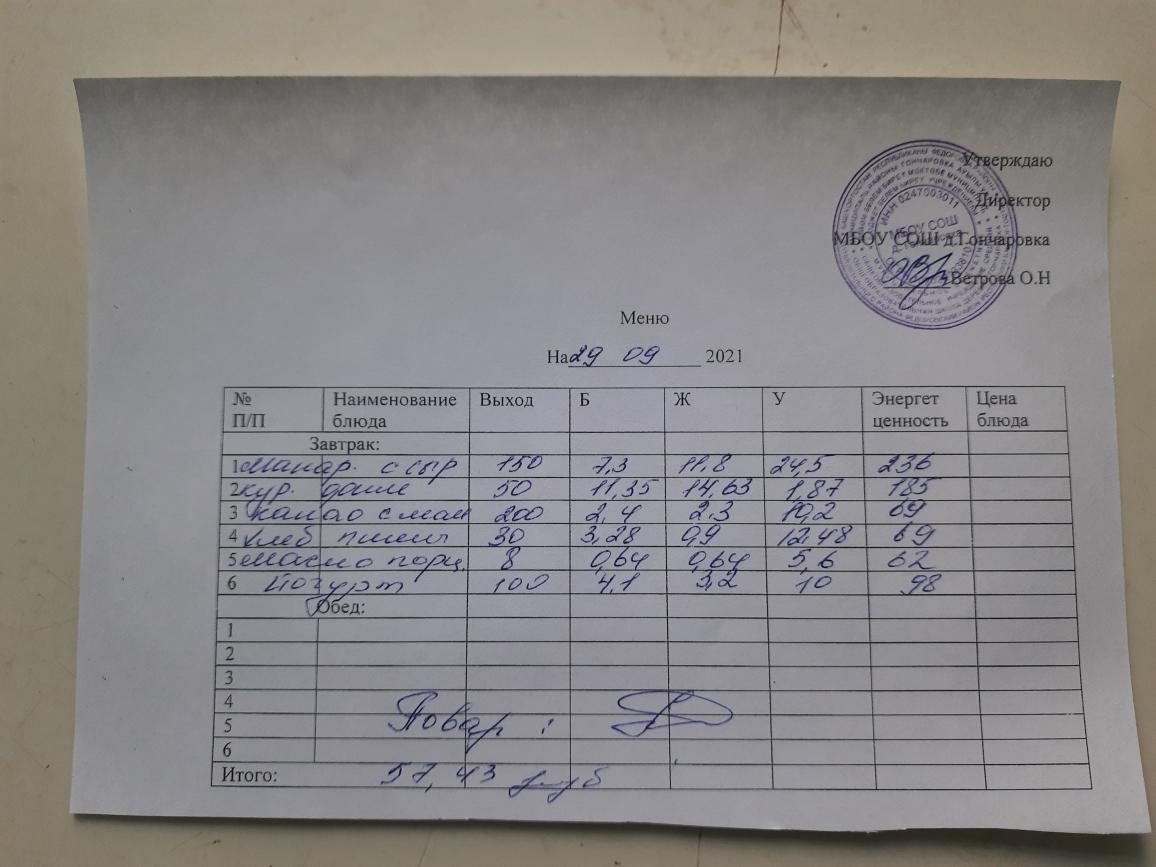 Утверждаю
Директор
МБОУ СОШ д.Гончаровка
Ветрова О.Н
ИНН 0247003011
МБОУ СОШ
Меню
На 29 09 2021
№ П/П Наименование блюда Выход Б Ж У Энергет ценность Цена блюда
Завтрак:
1 Макар. с сыр 150 7,3 11,8 24,5 236
2 кур. 50 11,35 14,63 1,87 185
3 какао с мол 200 2,4 2,3 10,2 69
4 хлеб пшен 30 3,28 0,9 12,48 69
5 масло порц. 8 0,64 0,64 5,6 62
6 Йогурт 100 4,1 3,2 10 98
Обед:
1
2
3
4
5
6
Повар :
Итого: 57,43 руб